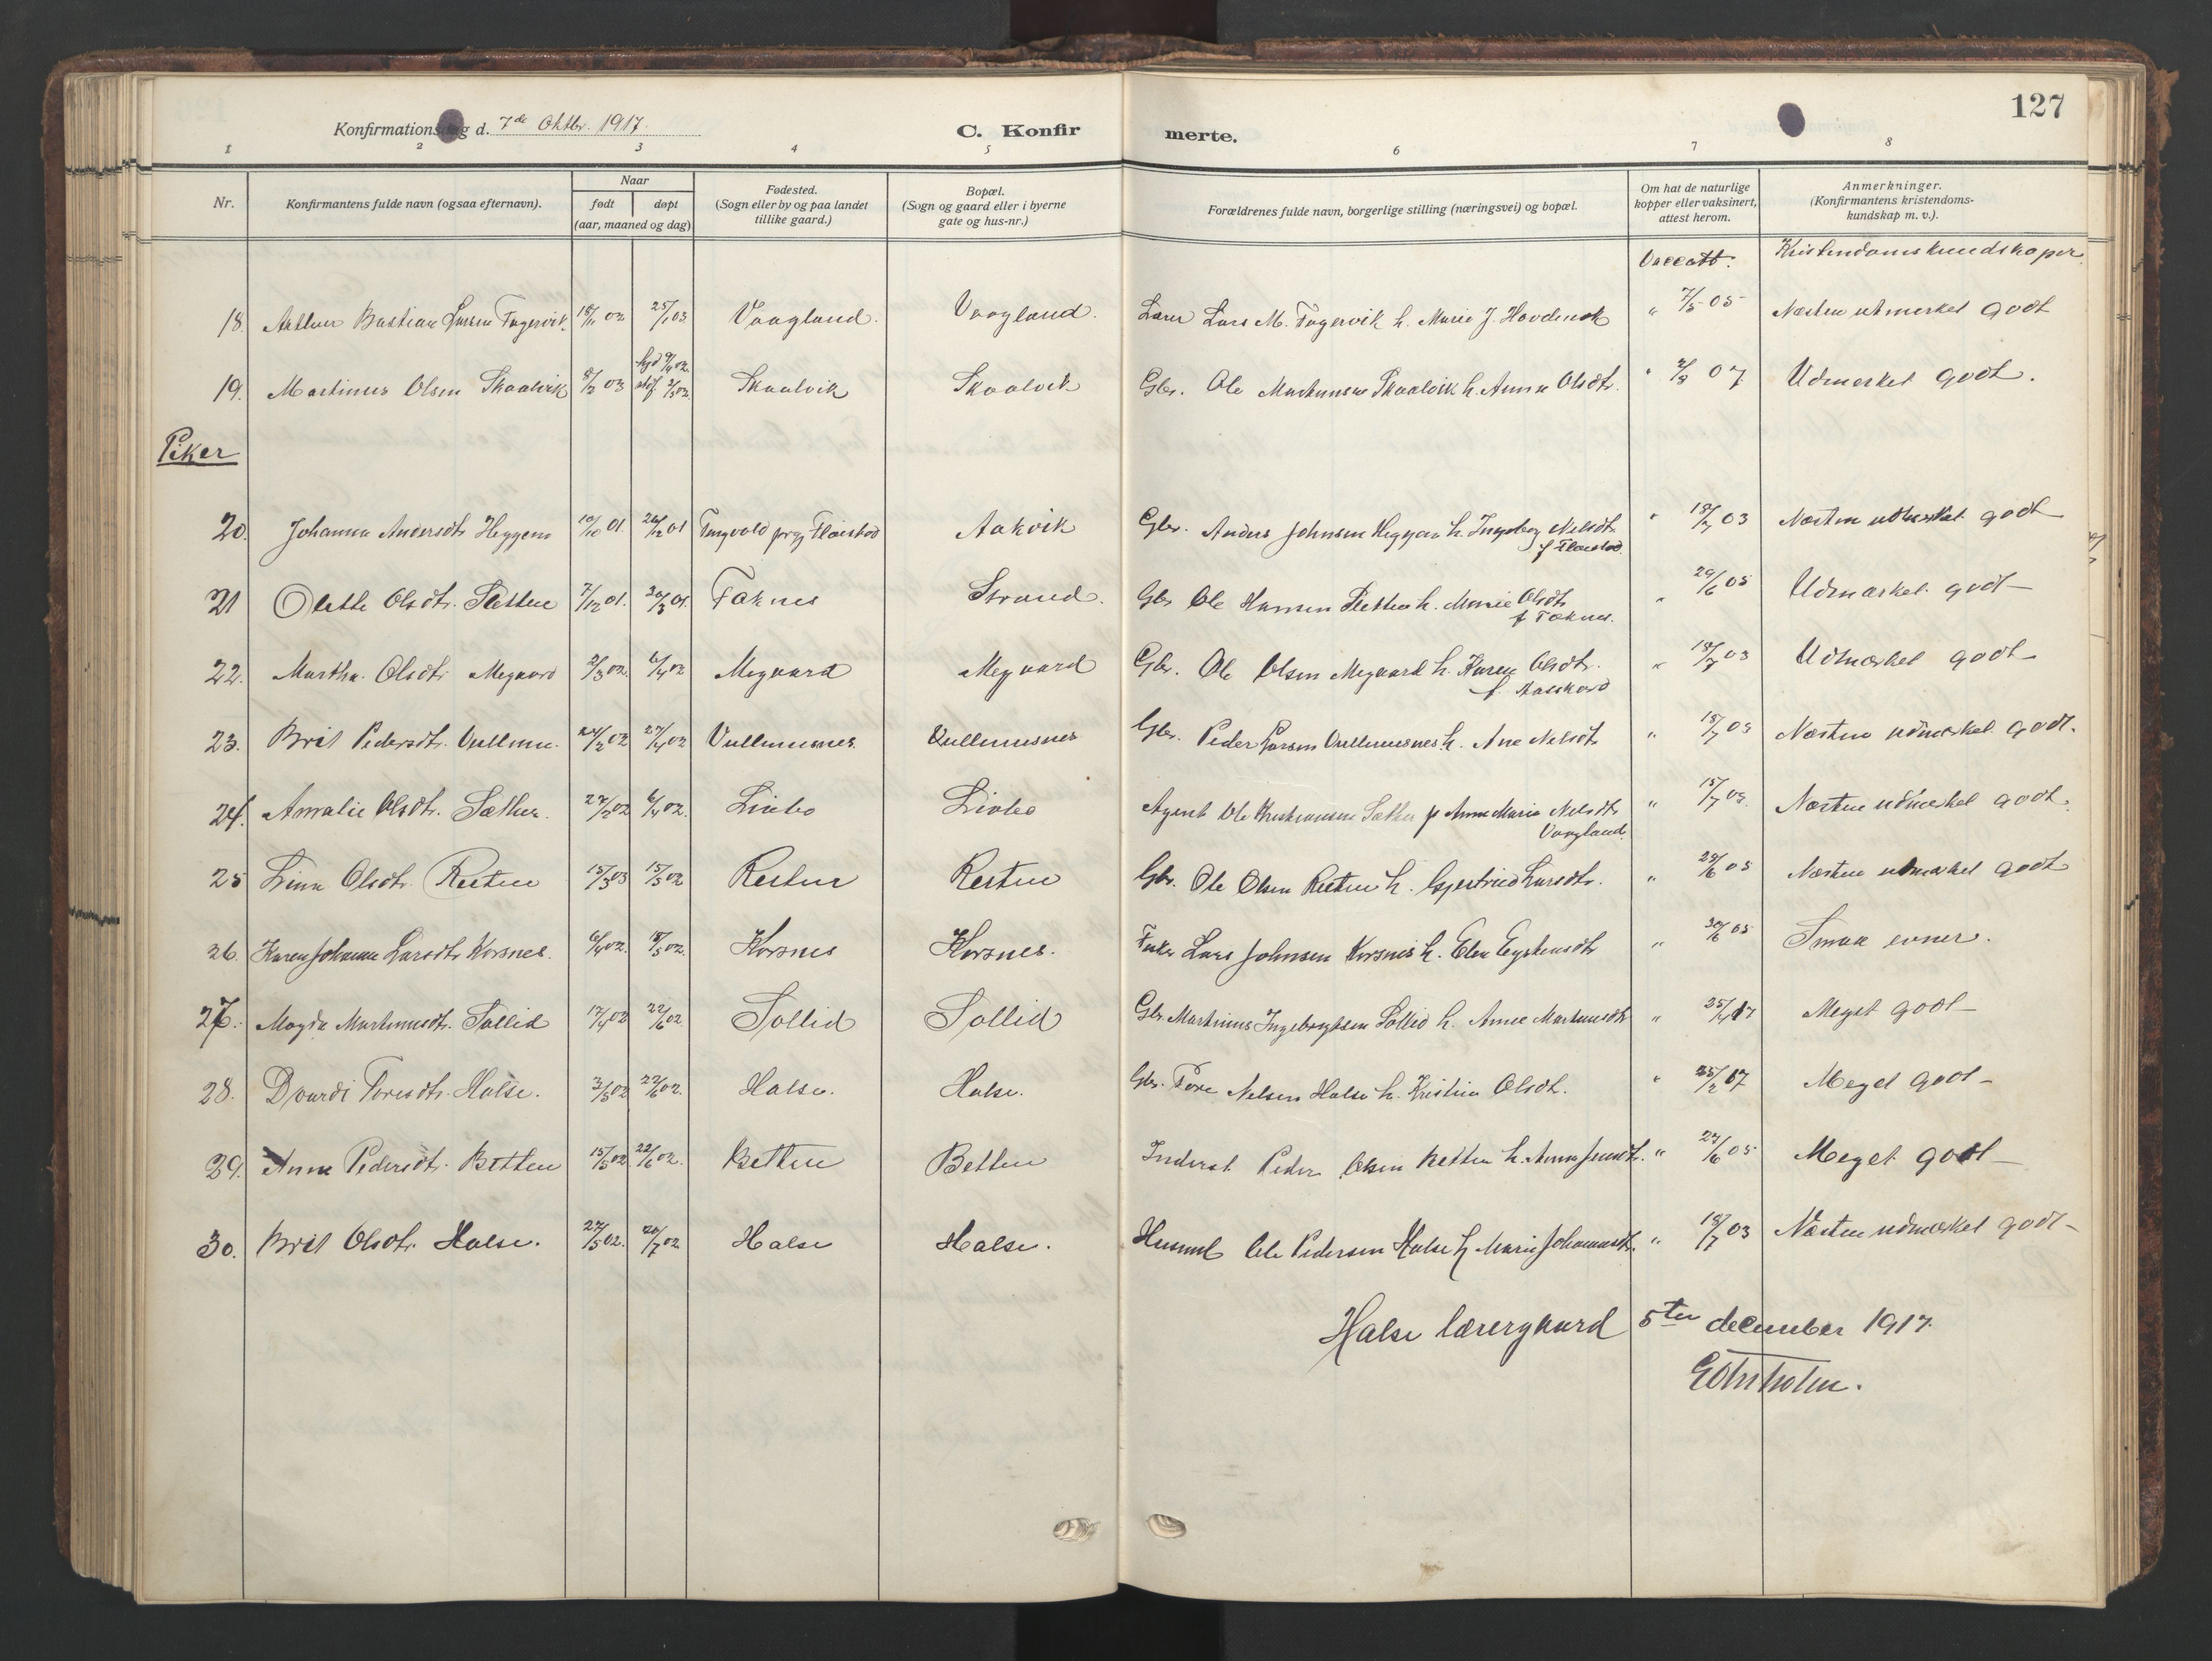 127
Konfirmationsdag d. 7de Oktbr. 1917.
C. Konfirmerte.
1 2 3 4 5 6 7 8
Nr. Konfirmantens fulde navn (ogsaa efternavn). Naar født døpt (aar, maaned og dag) Fødested. (Sogn eller by og paa landet tillike gaard.) Bopæl. (Sogn og gaard eller i byerne gate og hus-nr.) Forældrenes fulde navn, borgerlige stilling (næringsvei) og bopæl. Om hat de naturlige kopper eller vaksinert, attest herom. Anmerkninger. (Konfirmantens kristendoms-kundskap m. v.).
Vaccatt. Kristendomskundskaper
18. Arthur Bastian Larsen Fagervik. 18/11 02 25/1 03 Vaagland. Vaagland. Lærer Lars M. Fagervik h. Marie J. Hovdenak " 7/5 05 Næsten utmerket godt
19. Martinus Olsen Skaalvik 8/2 03 Skaalvik Skaalvik Gbr. Ole Martinusen Skaalvik h. Anne Olsdtr. " 2/8 07 Udmerket godt.
Piker
20. Johanna Andersdtr Heggem 10/10 01. 26/12 01 Tingvold prgj Flaestad Aakvik Gbr. Anders Johnsen Heggem h. Ingeborg Nelsdtr " 18/7 03 Næsten udmerket godt
f Flaestad.
21 Olette Olsdtr. Sletten 7/12 01. Faknes Strand. Gbr Ole Hansen Sletten h. Marie Olsdtr " 29/6 05 Udmærket godt
f Faknes.
22. Martha Olsdtr Megaard 2/3 02. 6/4 02 Megaard Megaard Gbr. Ole Olsen Megaard h. Karen Olsdtr. " 18/7 03 Udmerket godt
f. Aaeskard
23. Brit Pedersdtr. Vullum. 24/2 02 27/4 02 Vullumsnes. Vullumsnes Gbr. Peder Larsen Vullumsnes h. Ane Nelsdtr " 18/7 03 Næsten udmerket godt.
24. Amalie Olsdtr. Sæther. 27/2 02 6/4 02. Liabo Liabo Agent Ole Kristiansen Sæther f Anne Marie Nelsdtr " 15/7 03. Næsten udmerket godt.
Vaagland.
25 Lina Olsdtr. Resten 15/3 03 15/5 02 Resten Resten Gbr. Ole Olsen Resten h. Gjertrud Larsdtr. " 29/6 05 Næsten udmerket godt
26. Karen Johanna Larsdtr Korsnes. 6/4 02. 18/5 02. Korsnes Korsnes. Lars Johnsen Korsnes h. Elen Eystensdtr " 30/6 05 Smaa evner.
27. Magda Martinusdtr. Sollid 17/4 02 22/6 02. Sollid Sollid Gbr. Martinus Ingebrigtsen Sollid h. Anne Martinusdtr " 25/4 17 Meget godt
28. Dordi Toresdtr. Halse. 3/5 02 22/6 02. Halse. Halse. Gbr. Tore Nelsen Halse h. Kristine Olsdtr. " 25/2 17 Meget godt
29. Anna Pedersdtr. Betten 15/5 02. 22/6 02. Betten Betten Inderst Peder Olsen Betten h. Anne Jensdtr. " 27/6 05 Meget godt
30. Brit Olsdtr. Halse. 27/5 02. 20/7 02 Halse Halse. Husml Ole Pedersen Halse h Marie Johannesdtr. " 18/7 03 Næsten udmerket godt
Halse lærergaard 5ten december 1917.